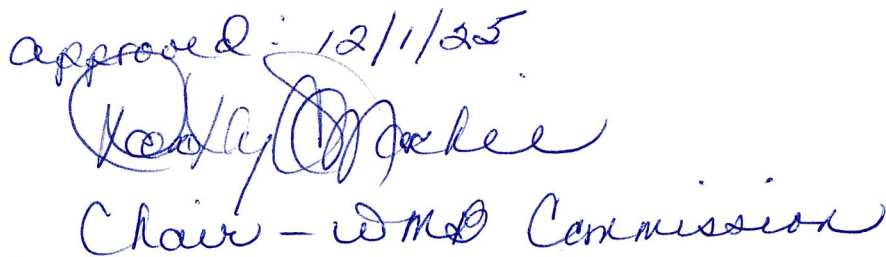 approved: 12/1/25
Chair - WMB Commission